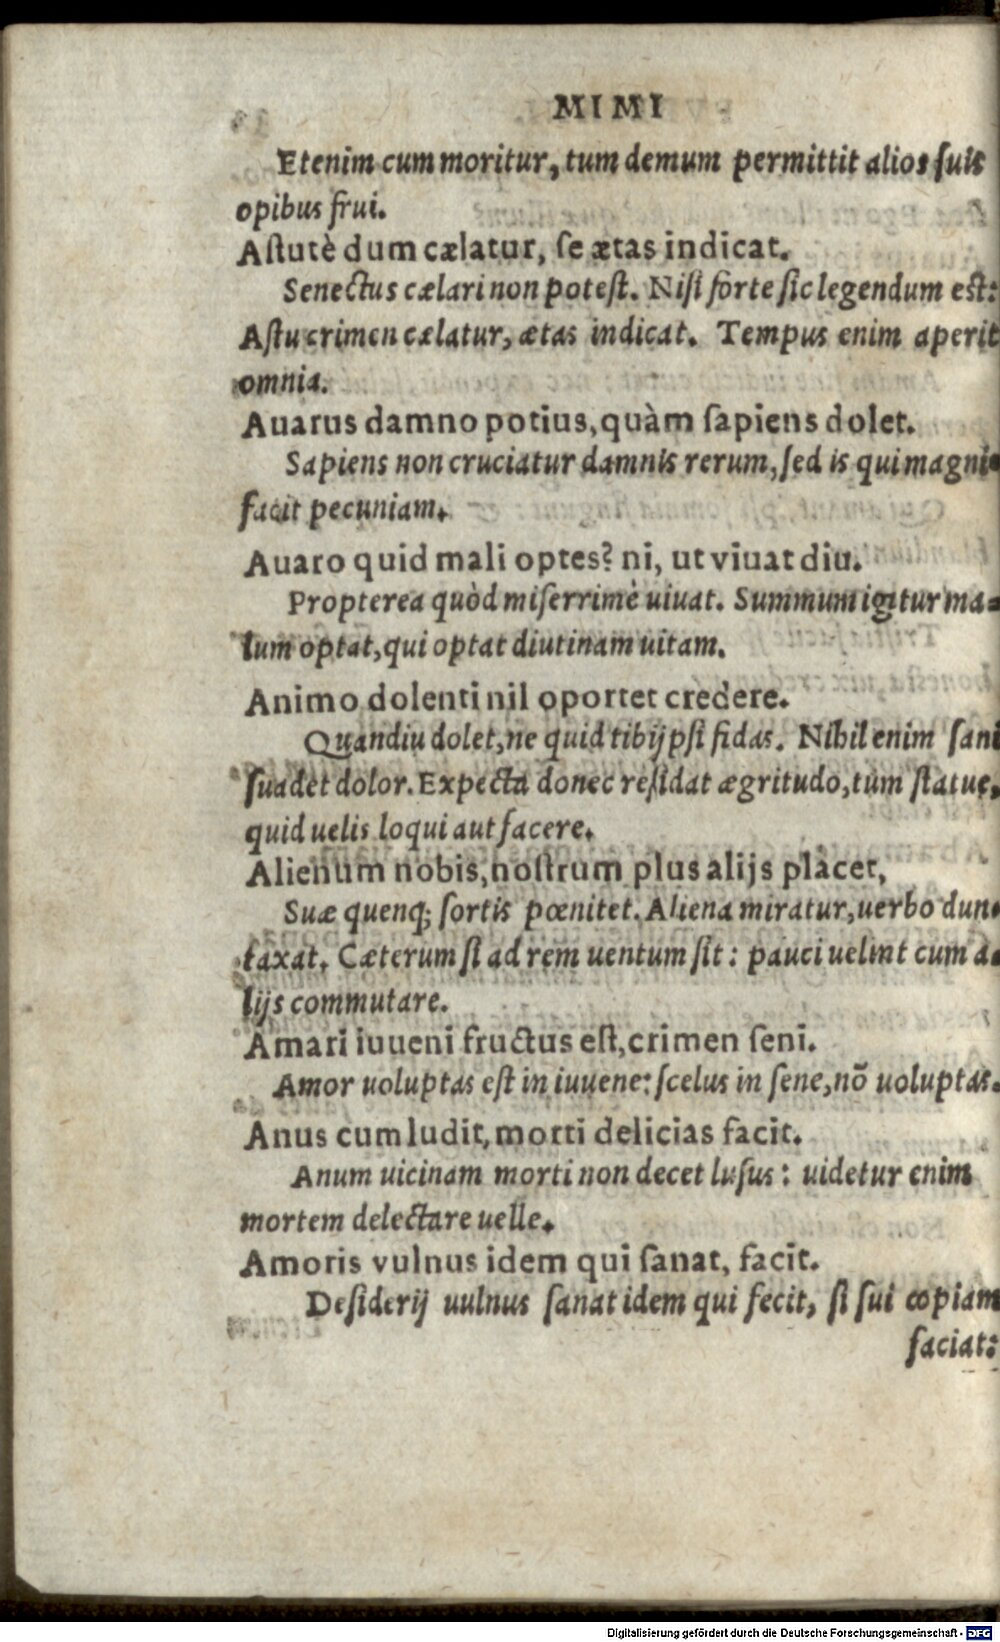 MIMI
Etenim cum moritur, tum demum permittit alios ſuis
opibus frui.
Aſtutè dum cælatur, ſe ætas indicat.
Senectus cælari non poteſt. Niſi forte ſic legendum eſt:
Aſtu crimen cælatur, ætas indicat. Tempus enim aperit
omnia.
Auarus damno potius, quàm ſapiens dolet.
Sapiens non cruciatur damnis rerum, ſed is qui magni
facit pecuniam.
Auaro quid mali optes? ni, ut viuat diu.
Propterea quòd miſerrimè uiuat. Summum igitur ma=
lum optat, qui optat diutinam uitam.
Animo dolenti nil oportet credere.
Quandiu dolet, ne quid tibijpſi fidas. Nihil enim ſani
ſuadet dolor. Expecta donec reſidat ægritudo, tum ſtatue,
quid uelis loqui aut facere.
Alienum nobis, noſtrum plus alijs placet,
Suæ quenq; ſortis pœnitet. Aliena miratur, uerbo dun=
taxat. Cæterum ſi ad rem uentum ſit: pauci uelint cum a=
lijs commutare.
Amari iuueni fructus eſt, crimen ſeni.
Amor uoluptas eſt in iuuene: ſcelus in ſene, nõ uoluptas.
Anus cum ludit, morti delicias facit.
Anum uicinam morti non decet luſus: uidetur enim
mortem delectare uelle.
Amoris vulnus idem qui ſanat, facit.
Deſiderij uulnus ſanat idem qui fecit, ſi ſui copiam
faciat:
Digitalisierung gefördert durch die Deutsche Forschungsgemeinschaft - DFG